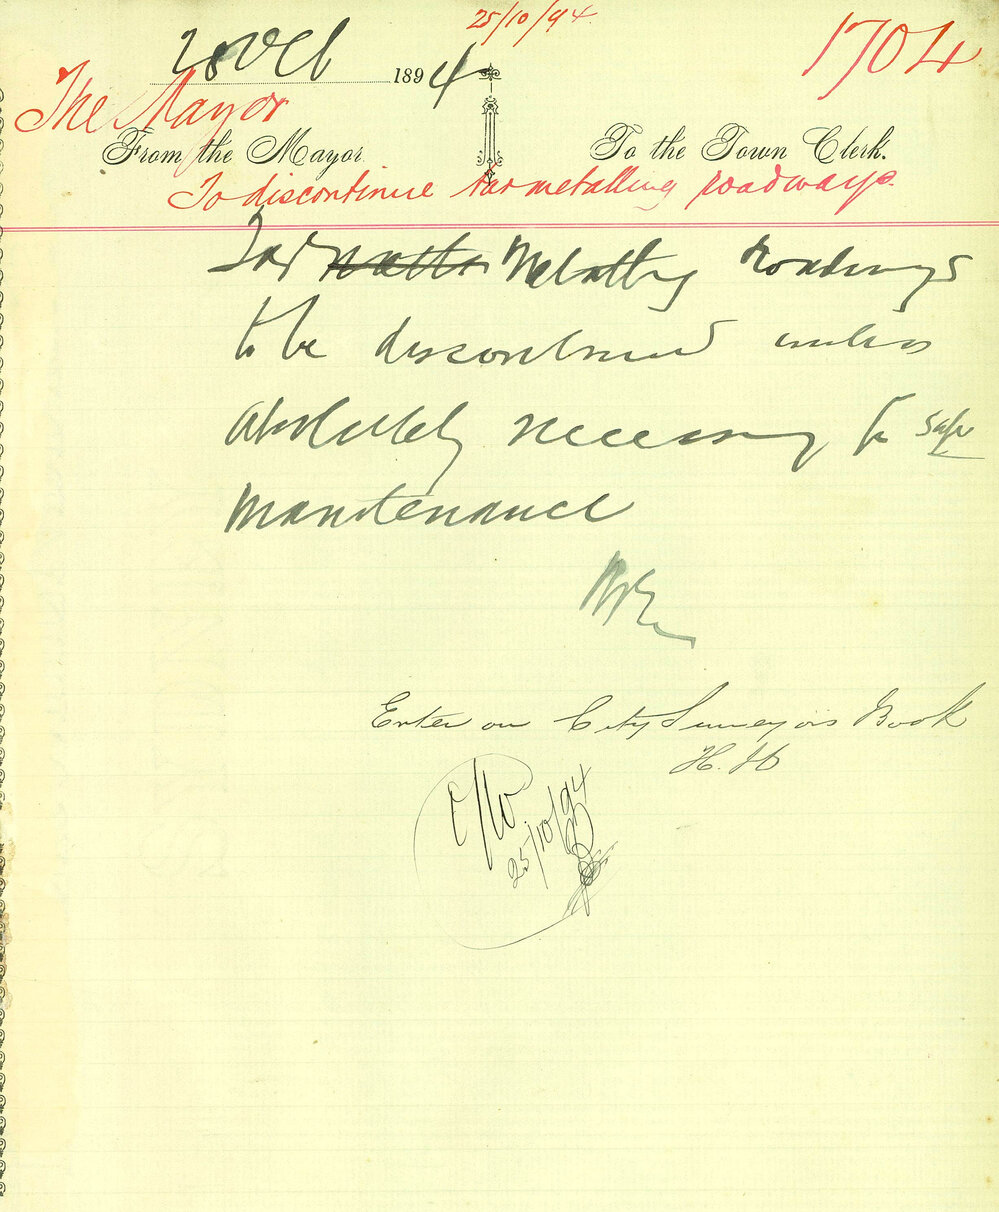 25/10/94
1704
Oct 1894
The Mayor
From the Mayor To the Town Clerk.
To discontinue tarmetalling roadways.
Tar Metalling roadways
to be discontinued unless
absolutely necessary for safe
maintenance
Enter on City Surveyors Book
H. H
25/10/94